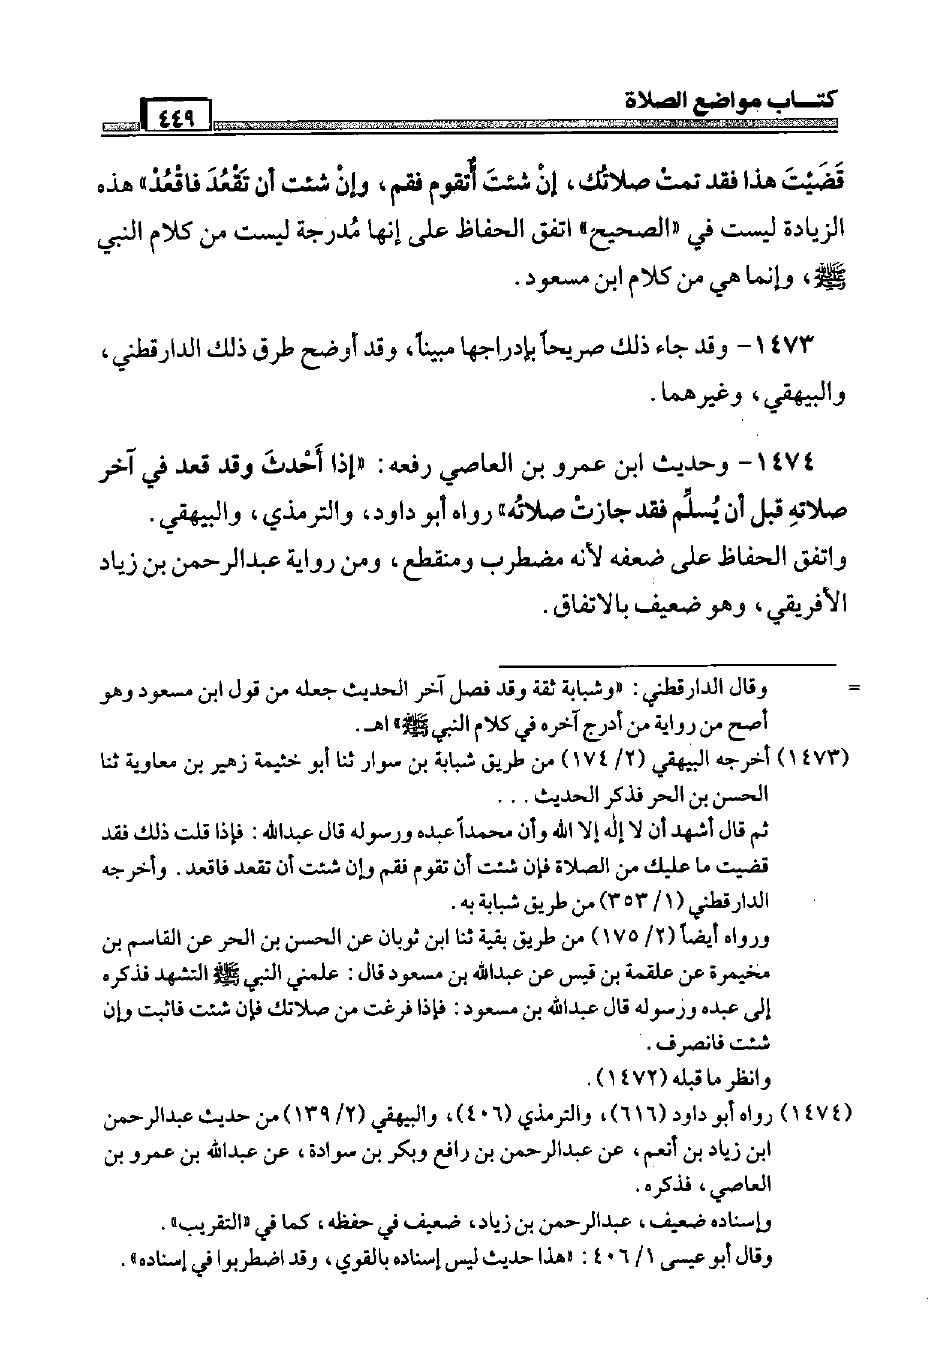 كتاب مواضع الصلاة
٤٤٩
قَضَيْتَ هذا فقد تمتْ صلاتُك، إنْ شئتَ أُتقوم فقم، وإنْ شئت أن تَقْعُدَ فاقْعُدْ» هذه
الزيادة ليست في «الصحيح» اتفق الحفاظ على إنها مُدرجة ليست من كلام النبي
ﷺ، وإنما هي من كلام ابن مسعود.
١٤٧٣- وقد جاء ذلك صريحاً بإدراجها مبيناً، وقد أوضح طرق ذلك الدارقطني،
والبيهقي، وغيرهما.
١٤٧٤- وحديث ابن عمرو بن العاصي رفعه: «إذا أَحْدثَ وقد قعد في آخر
صلاتهِ قبل أن يُسلِّم فقد جازتْ صلاتُه» رواه أبو داود، والترمذي، والبيهقي.
واتفق الحفاظ على ضعفه لأنه مضطرب ومنقطع، ومن رواية عبدالرحمن بن زياد
الأفريقي، وهو ضعيف بالاتفاق.
= وقال الدارقطني: «وشبابة ثقة وقد فصل آخر الحديث جعله من قول ابن مسعود وهو
أصح من رواية من أدرج آخره في كلام النبي ﷺ» اهـ.
(١٤٧٣) أخرجه البيهقي (٢/ ١٧٤) من طريق شبابة بن سوار ثنا أبو خثيمة زهير بن معاوية ثنا
الحسن بن الحر فذكر الحديث ...
ثم قال أشهد أن لا إله إلا الله وأن محمداً عبده ورسوله قال عبدالله: فإذا قلت ذلك فقد
قضيت ما عليك من الصلاة فإن شئت أن تقوم فقم وإن شئت أن تقعد فاقعد. وأخرجه
الدارقطني (١/ ٣٥٣) من طريق شبابة به.
ورواه أيضاً (٢/ ١٧٥) من طريق بقية ثنا ابن ثوبان عن الحسن بن الحر عن القاسم بن
مخيمرة عن علقمة بن قيس عن عبدالله بن مسعود قال: علمني النبي ﷺ التشهد فذكره
إلى عبده ورسوله قال عبدالله بن مسعود: فإذا فرغت من صلاتك فإن شئت فاثبت وإن
شئت فانصرف.
وانظر ما قبله (١٤٧٢).
(١٤٧٤) رواه أبو داود (٦١٦)، والترمذي (٤٠٦)، والبيهقي (٢/ ١٣٩) من حديث عبدالرحمن
ابن زياد بن أنعم، عن عبدالرحمن بن رافع وبكر بن سوادة، عن عبدالله بن عمرو بن
العاصي، فذكره.
وإسناده ضعيف، عبدالرحمن بن زياد، ضعيف في حفظه، كما في «التقريب».
وقال أبو عيسى ١/ ٤٠٦: «هذا حديث ليس إسناده بالقوي، وقد اضطربوا في إسناده».